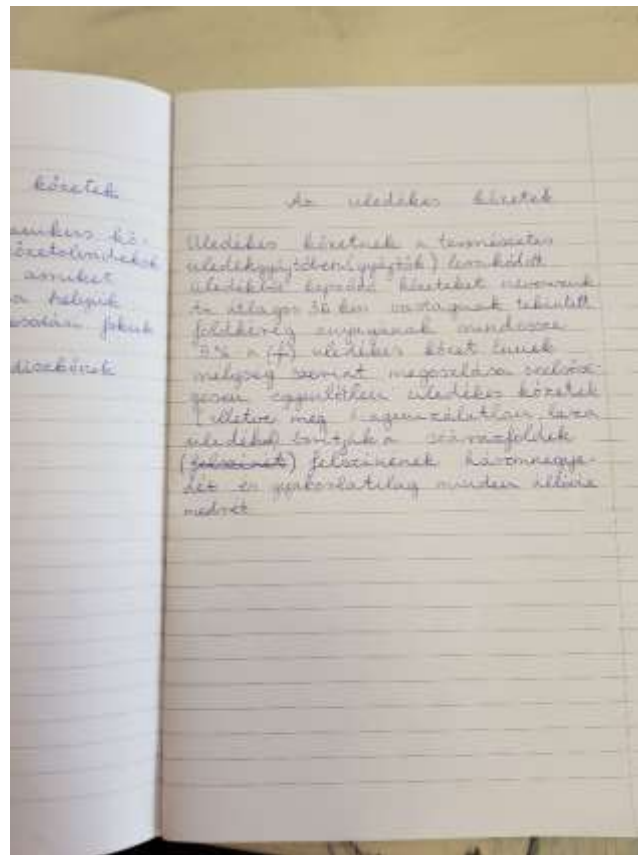 kőzetek
a helyük
díszkövek
Az üledékes kőzetek
Üledékes kőzetnek a természetes
üledékgyűjtőben(gyűjtők) lerakódott
üledékből képződő kőzeteket nevezzük
Az átlagos 36 km vastagnak tekintett
földkéreg anyagának mindössze
5% a (f) üledékes kőzet Ennek
mélység szerint megoszlása szélsősé-
gesen egyenlőtlen üledékes kőzetek
(illetve még laza
üledékek) borítják a szárazföldek
(felszínét) felszínének háromnegye-
dét és gyakorlatilag minden állóvíz
medrét